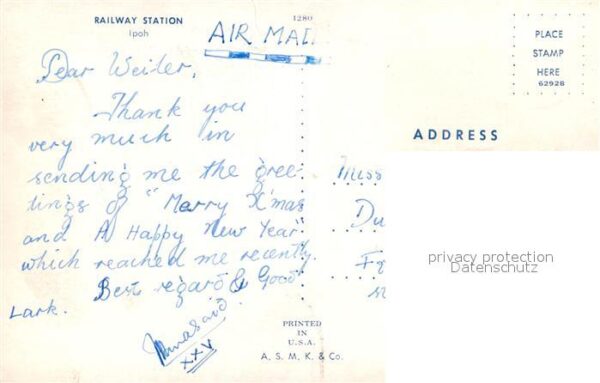 RAILWAY STATION
Ipoh
1280
AIR MAIL
PLACE
STAMP
HERE
62928
Dear Weiler,
Thank you
very much in
sending me the gree-
tings of "Merry X'mas
and A Happy New Year"
which reached me recently.
Best regard & Good
Lark.
XXV
ADDRESS
Miss
Du
privacy protection
Datenschutz
PRINTED
IN
U.S.A.
A. S. M. K. & Co.